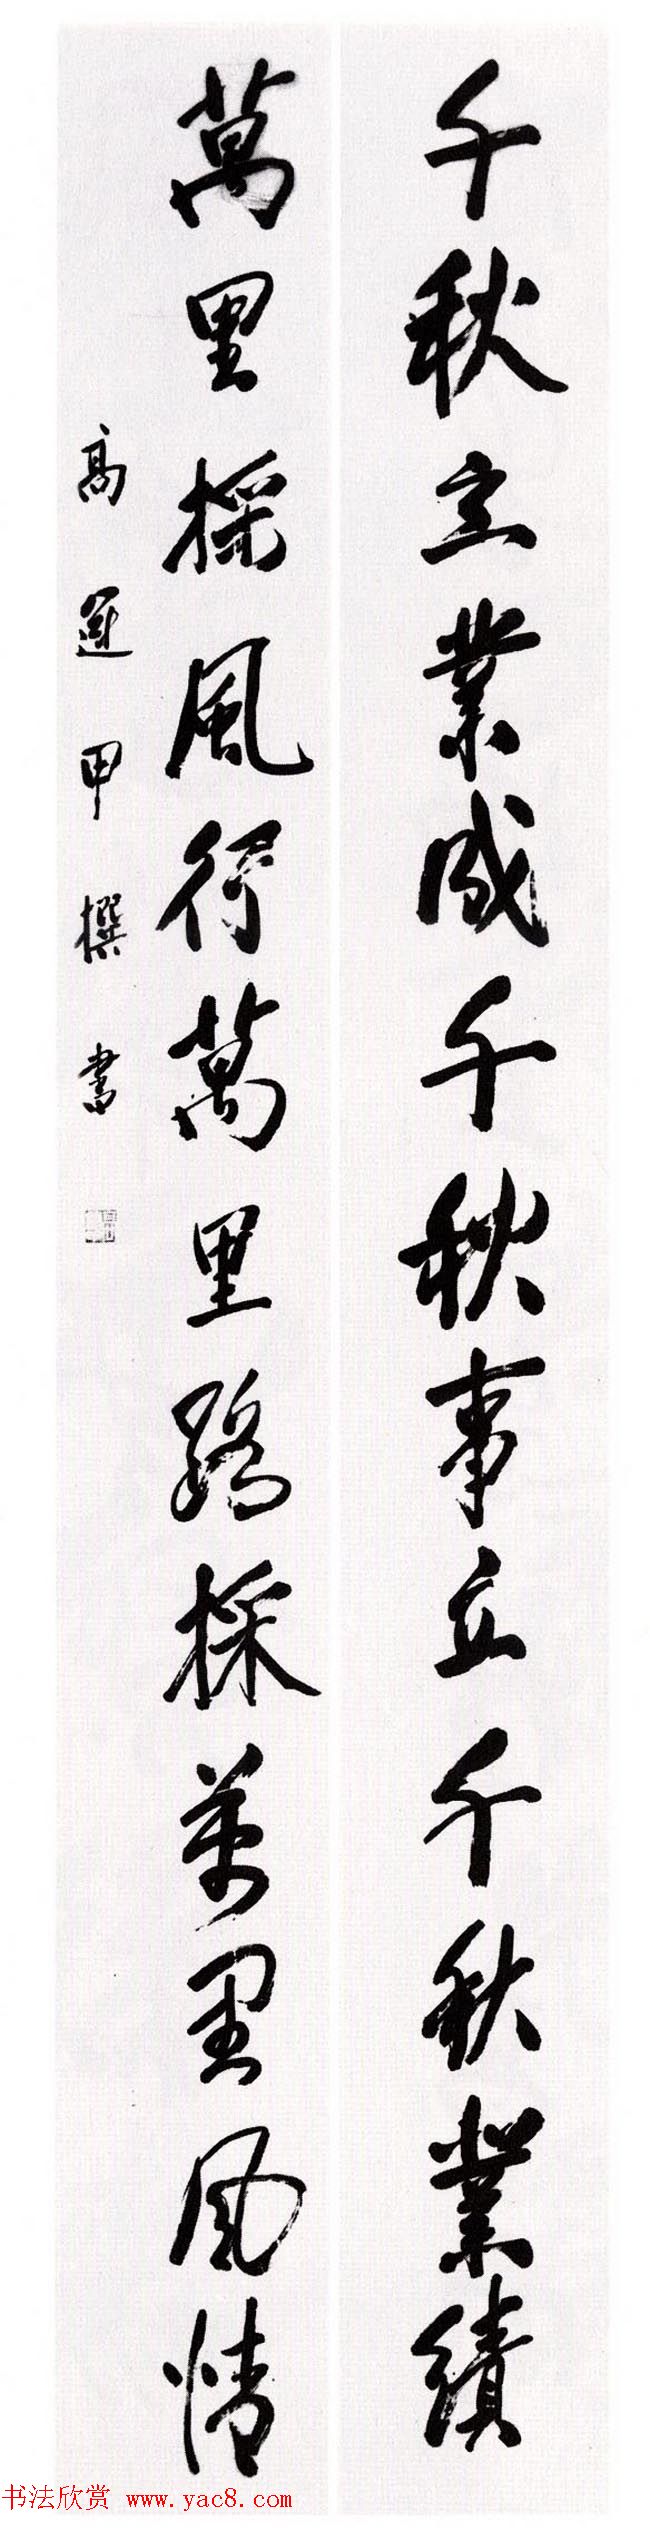 千秋立業成千秋事立千秋業績
萬里採風行萬里路採萬里風情
高運甲撰書
书法欣赏 www.yac8.com